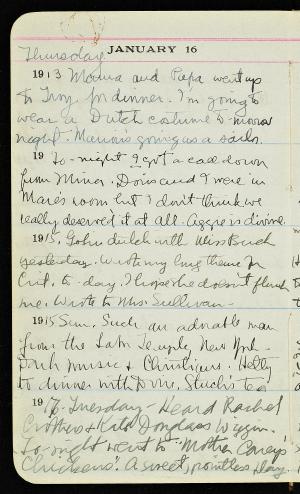 Thursday JANUARY 16
1913 Mama and Papa went up
to Troy for dinner. I'm going to
wear a Dutch costume to-morrow
night. Marion's going as a sailor.
19 To-night I got a call down
from Miner. Doris and I were in
Marie's room but I don't think we
really deserved it at all. is divine.
1915, John dutch with Miss Buck
yesterday. Wrote my long theme for
Crit. to-day. I hope he doesn't flunk
me. Wrote to Mrs. Sullivan -
1915 Sun. Such an adorable man
from the Temple, New York -
Dark music & Christians. Hetty
to dinner with D. tea
1917. Tuesday - Heard Rachel
Crothers & Kate Douglas Wiggin.
To-night went to "Mother Carey's
Chickens". A sweet, pointless play.